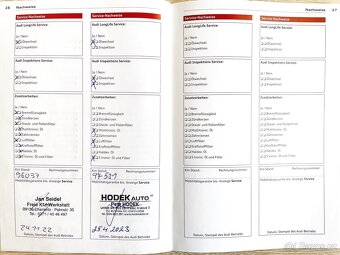 26 Nachweise
Service-Nachweise
Audi LongLife Service:
Ja / Nein
Ölwechsel
Inspektion
Audi Inspektions Service:
Ja / Nein
Ölwechsel
Inspektion
Zusatzarbeiten:
Ja / Nein
Bremsflüssigkeit
Zündkerzen
Staub- und Pollenfilter
Multitronic: Öl
Zahnriemen
Luftfilter
Kraftstofffilter
S tronic: Öl und Ölfilter
Km-Stand: Rechnungsnummer:
96037
Mobilitätsgarantie bis Anzeige Service
Jan Seidel
Freie Kfz-Werkstatt
24.11.22
Datum, Stempel des Audi Betriebs
Service-Nachweise
Audi LongLife Service:
Ja / Nein
Ölwechsel
Inspektion
Audi Inspektions Service:
Ja / Nein
Ölwechsel
Inspektion
Zusatzarbeiten:
Ja / Nein
Bremsflüssigkeit
Zündkerzen
Staub- und Pollenfilter
Multitronic: Öl
Zahnriemen
Luftfilter
Kraftstofffilter
S tronic: Öl und Ölfilter
Km-Stand: Rechnungsnummer:
Mobilitätsgarantie bis Anzeige Service
HODEK AUTO
Petr HODEK
25.4.2023
Datum, Stempel des Audi Betriebs
Nachweise 27
Service-Nachweise
Audi LongLife Service:
Ja / Nein
Ölwechsel
Inspektion
Audi Inspektions Service:
Ja / Nein
Ölwechsel
Inspektion
Zusatzarbeiten:
Ja / Nein
Bremsflüssigkeit
Zündkerzen
Staub- und Pollenfilter
Multitronic: Öl
Zahnriemen
Luftfilter
Kraftstofffilter
S tronic: Öl und Ölfilter
Km-Stand: Rechnungsnummer:
Mobilitätsgarantie bis Anzeige Service
Datum, Stempel des Audi Betriebs
Service-Nachweise
Audi LongLife Service:
Ja / Nein
Ölwechsel
Inspektion
Audi Inspektions Service:
Ja / Nein
Ölwechsel
Inspektion
Zusatzarbeiten:
Ja / Nein
Bremsflüssigkeit
Zündkerzen
Staub- und Pollenfilter
Multitronic: Öl
Zahnriemen
Luftfilter
Kraftstofffilter
S tronic: Öl und Ölfilter
Km-Stand: Rechnungsnummer:
Mobilitätsgarantie bis Anzeige Service
Datum, Stempel des Audi Betriebs